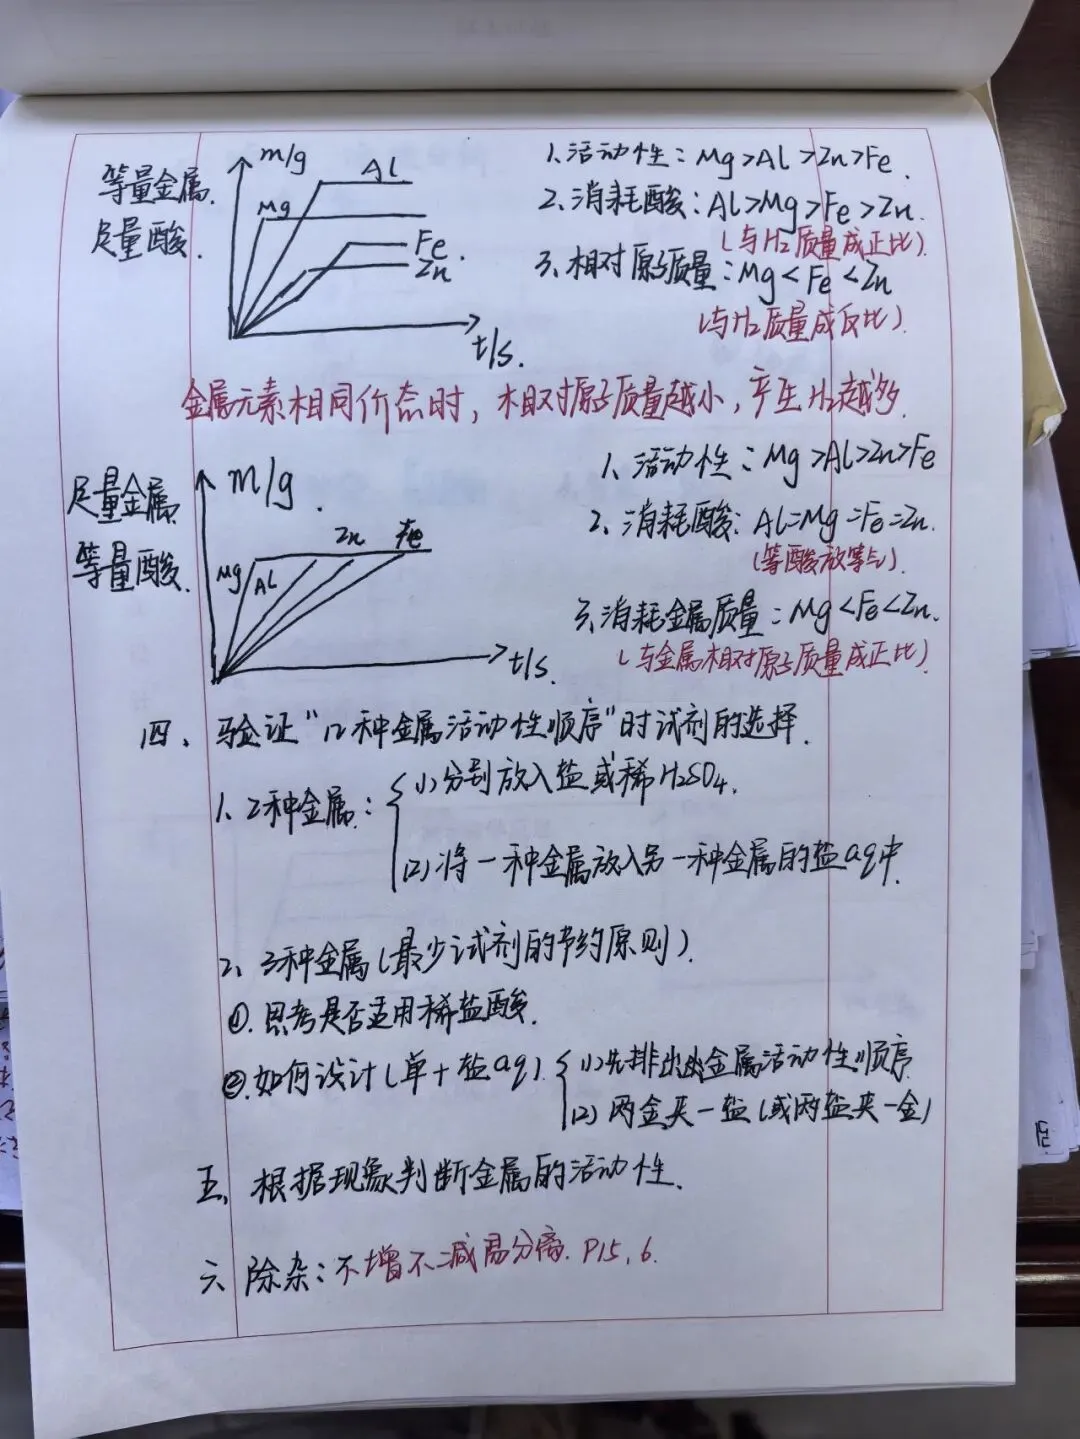 等量金属.
足量酸.
m/g
Al
Mg
Fe
Zn
t/s.
1、活动性：Mg>Al>Zn>Fe.
2、消耗酸：Al>Mg>Fe>Zn.
(与H₂质量成正比).
3、相对原子质量：Mg<Fe<Zn
(与H₂质量成反比).
金属元素相同价态时，相对原子质量越小，产生H₂越多.
足量金属.
等量酸.
m/g.
Mg
Al
Zn
Fe
t/s.
1、活动性：Mg>Al>Zn>Fe
2、消耗酸：Al=Mg=Fe=Zn.
(等酸放等气).
3、消耗金属质量：Mg<Fe<Zn.
(与金属相对原子质量成正比)
四、验证“几种金属活动性顺序”时试剂的选择.
1、2种金属：
(1)分别放入盐或稀H₂SO₄.
(2)将一种金属放入另一种金属的盐aq中.
2、3种金属(最少试剂的节约原则).
①.思考是否适用稀盐酸.
②.如何设计(单+盐aq).
(1)先排出金属活动性顺序
(2)两金夹一盐(或两盐夹一金)
五、根据现象判断金属的活动性.
六、除杂：不增不减易分离. P15, 6.